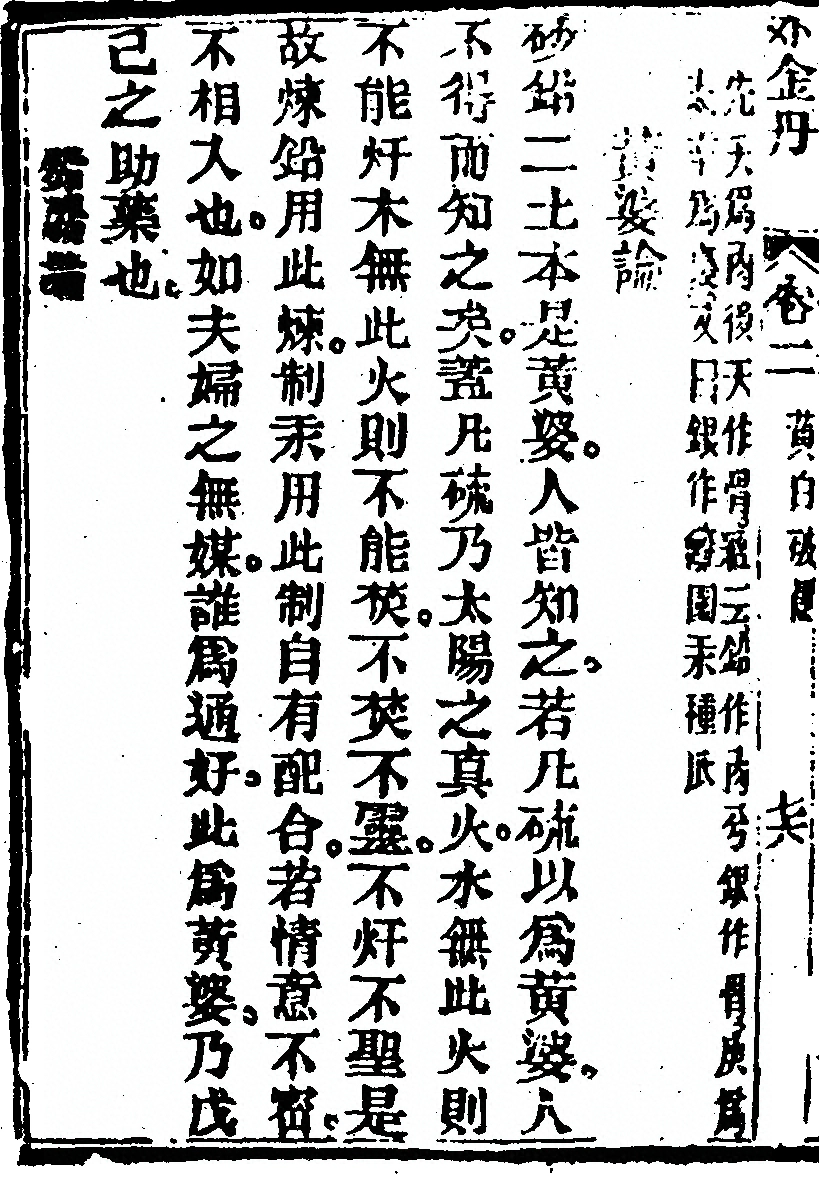 外金丹　卷二　黃白破愚　六
先天爲肉後天作骨豇云鉛作肉兮銀作骨庚爲
日銀作園汞種
黃婆論
砂鉛二土本是黃婆。人皆知之。若凡硫以爲黃婆。人
不得而知之矣。蓋凡硫乃太陽之真火。水無此火則
不能灯木無此火則不能焚。不焚不靈。不灯不聖是
故煉鉛用此煉。制汞用此制自有配合。若情意不密。
不相入也。如夫婦之無媒。誰爲通好。此爲黃婆。乃戊
己之助藥也。